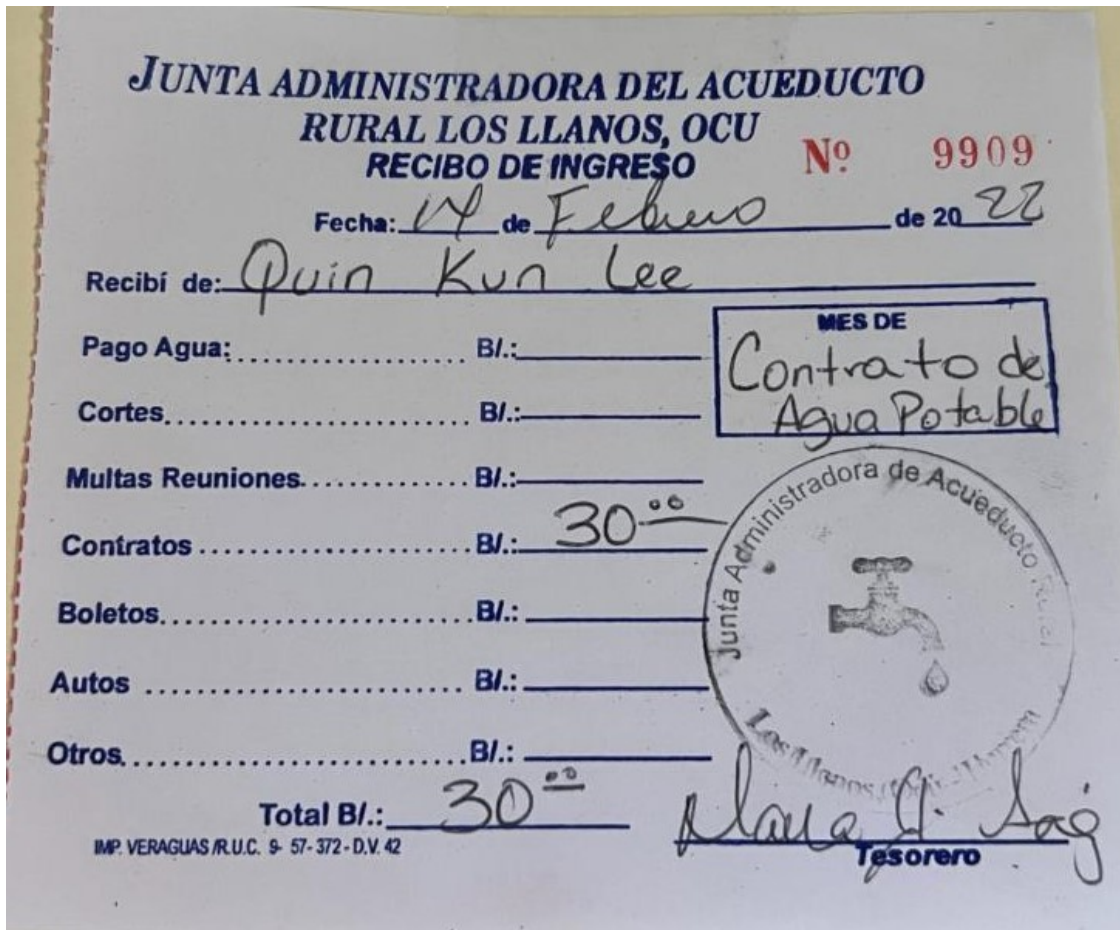 JUNTA ADMINISTRADORA DEL ACUEDUCTO
RURAL LOS LLANOS, OCU
RECIBO DE INGRESO Nº 9909
Fecha: 14 de Febrero de 20 22
Recibí de: Quin Kun Lee
MES DE
Contrato de
Agua Potable
Pago Agua: B/.:
Cortes B/.:
Multas Reuniones B/.:
Contratos B/.: 30.00
Boletos B/.:
Autos B/.:
Otros B/.:
Total B/.: 30.00
Junta Administradora de Acueducto Rural
Los Llanos
Tesorero
IMP. VERAGUAS /R.U.C. 9- 57- 372 - D.V. 42